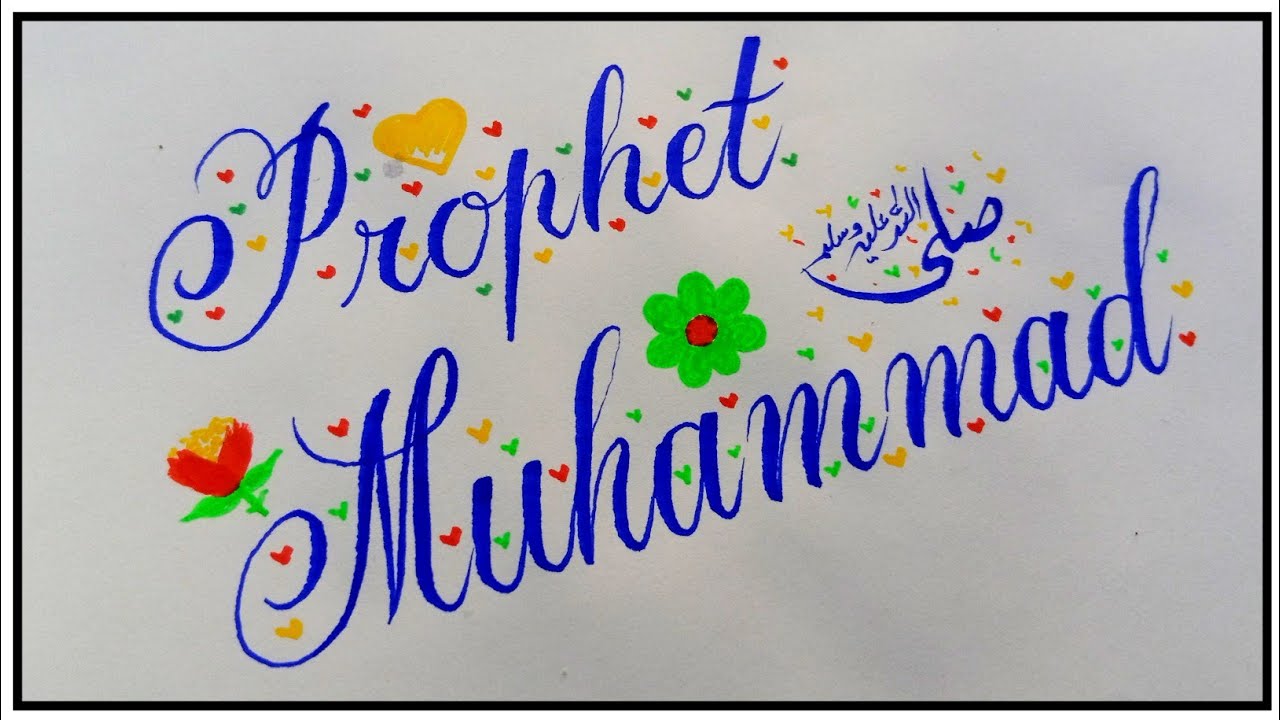 Prophet
صلى الله عليه وسلم
Muhammad